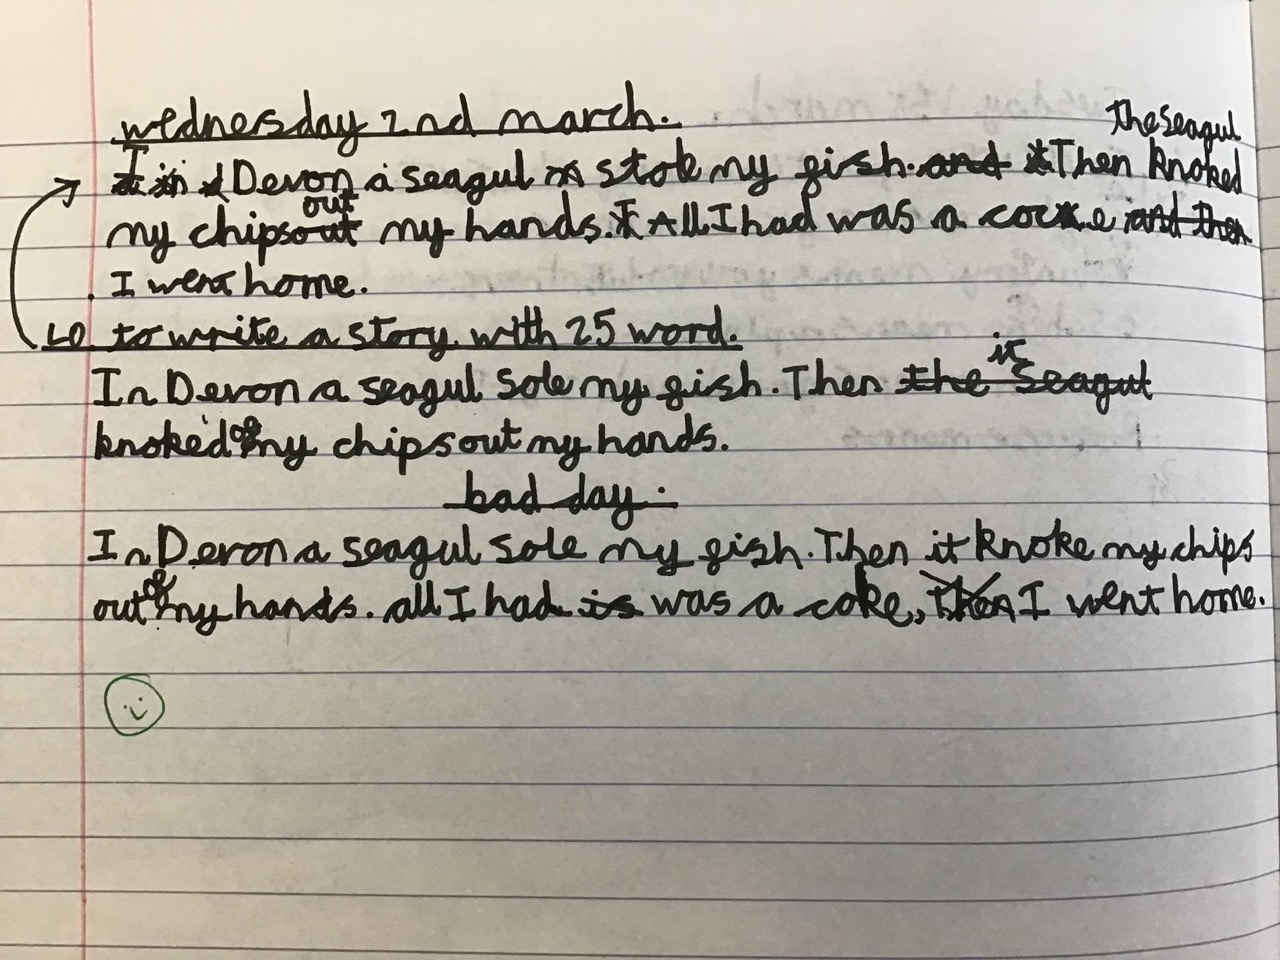 wednesday 2nd march.
the seagul
I in Devon a seagul stole my fish. and Then knoked
out
my chips out my hands. All I had was a coke and then
I went home.
LO to write a story with 25 word.
it
In Devon a seagul sole my fish. Then the seagul
knoked of my chips out my hands.
bad day.
In Devon a seagul sole my fish. Then it knoke my chips
out of my hands. all I had is was a coke, Then I went home.